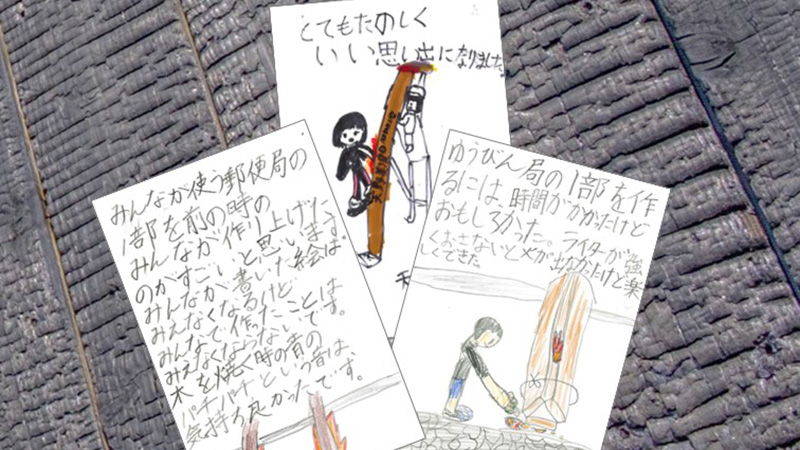 とてもたのしく
いい思い出になりました。
みんなが使う郵便局の
1部を前の時の
みんなが作り上げた
のがすごいと思います
みんなが書いた絵は
みえなくなるけど
みんなで作ったことは
みえなくならないです。
木を焼く時の音の
パチパチという音は、
気持ち良かったです。
ゆうびん局の1部を作
るには、時間がかかったけど
おもしろかった。ライターが強
くおさないと火が出なかったけど楽
しくできた。